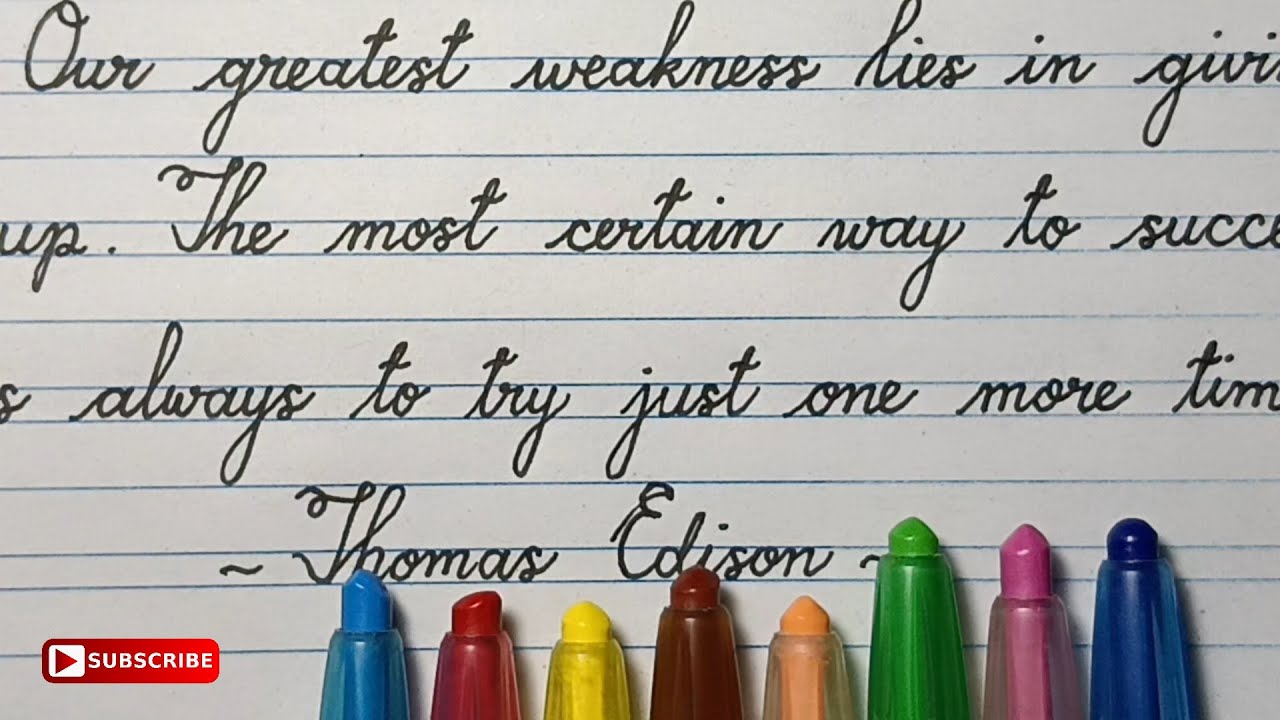 Our greatest weakness lies in givi
up. The most certain way to succe
s always to try just one more tim
~ Thomas Edison ~
SUBSCRIBE